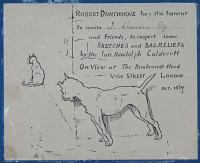 ROBERT DUNTHORNE has the honour
to invite
and Friends, to inspect some
SKETCHES and BAS-RELIEFS
by the late Randolph Caldecott
On View at The Rembrandt Head
VIGO STREET LONDON
Oct. 1887